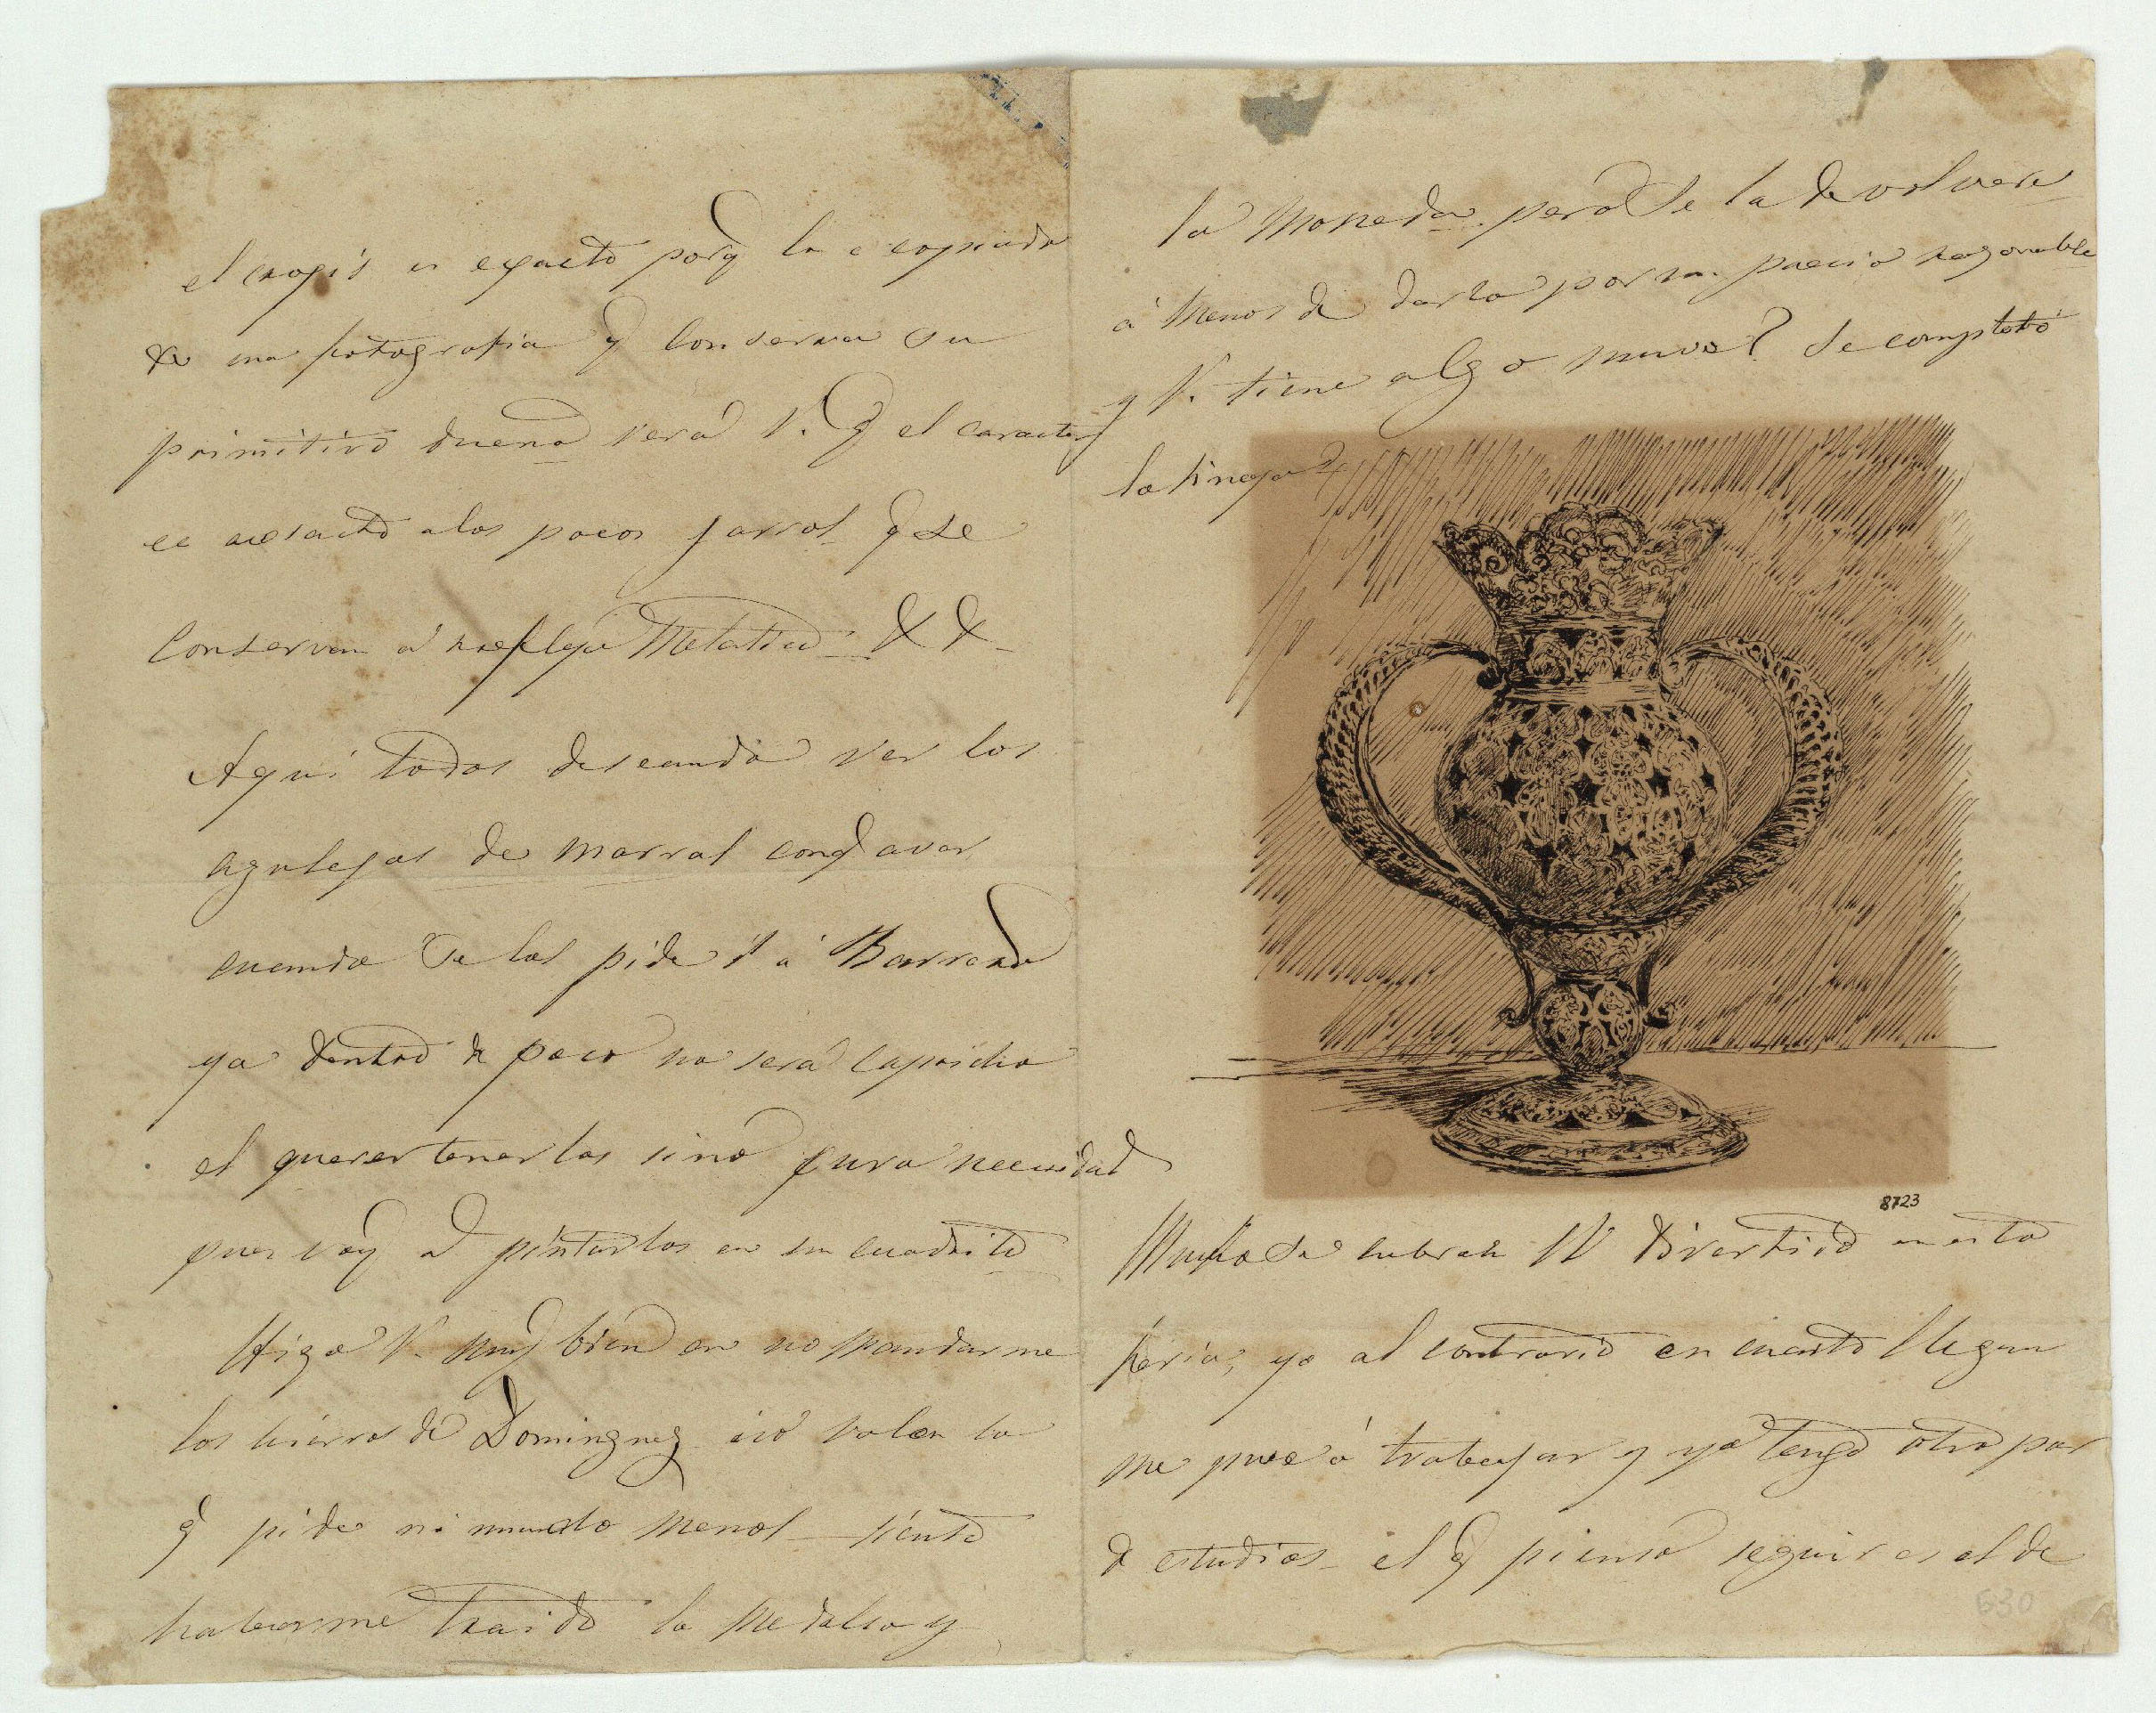 el croqis es esacto porq̃ lo e copiado
de una fotografia y conserva su
primitivo dueño verá V. q̃ el caracter
es acsacto a los pocos jarros q̃ se
conservan á reflejo Metalico
Aqui todos deseando ver los
azulejos de marras conq̃ aver
cuando se los pide V á
ya dentro de poco no será capricho
el querer tenerlos sino pura necesidad
pues voy á pintarlos en un cuadrito
Hizo V. muy bien en no mandarme
los hierros de Dominguez nió valen lo
q̃ pide ni mucho menos siento
haberme traido la Medalla y
la Moneda pero se la devolvere
á Menos de darla por un precio razonable
y V. tiene algo nuevo? Se completó
la tinaja?
8723
Mucho se habrán VV divertido en esta
feria, yo al contrario en cuanto llegue
me puse á trabajar y ya tengo otro par
de estudios el q̃ pienso seguir es el de
530